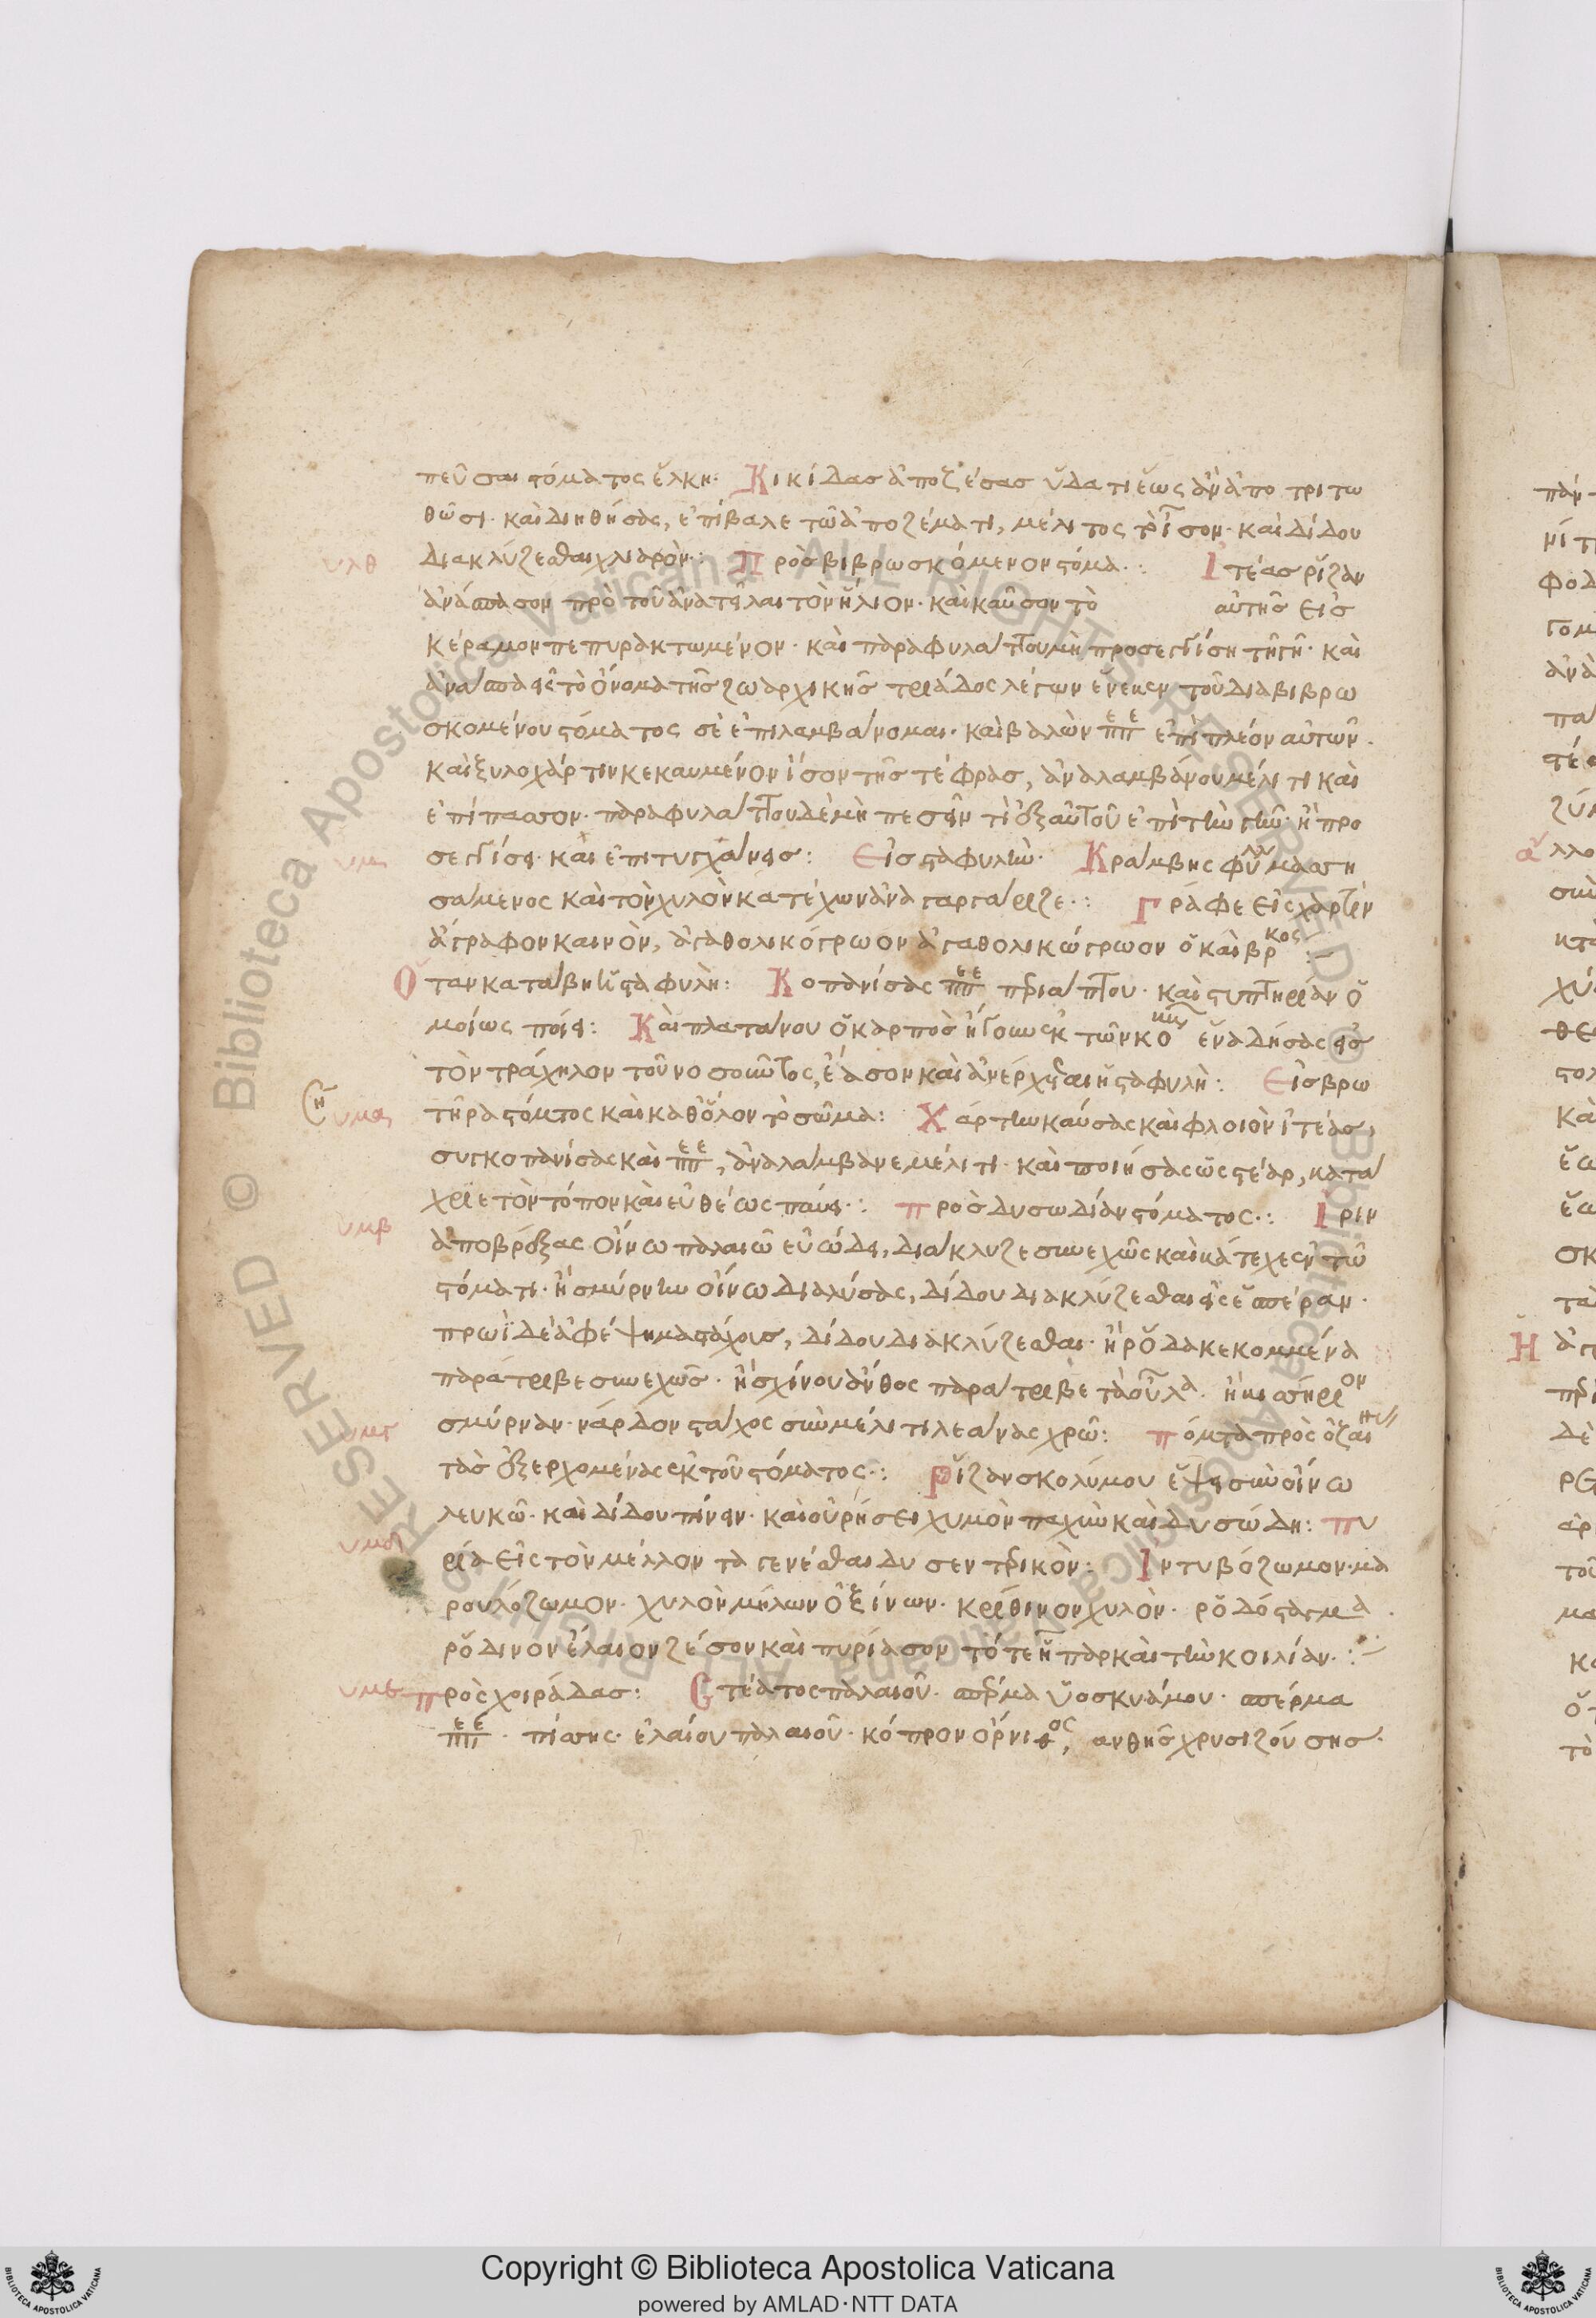 πεῦσαι στόματος ἕλκη: Κικίδας ἀποζέσας ὕδατι ἕως ἂν ἀποτριτω
θῶσι· καὶ διηθήσας, ἐπίβαλε τῶ ἀποζέματι, μέλιτος τὸ ἴσον· καὶ δίδου
υλθ διακλύζεσθαι χλιαρόν: Πρὸς βιβρωσκόμενον στόμα: Ἰτέας ῥίζαν
ἀνάσπασον πρὸ τοῦ ἀνατεῖλαι τὸν ἥλιον· καὶ καῦσον τὸ αὐτῆς εἰς
κέραμον πεπυρακτωμένον· καὶ παραφυλάττου μὴ προσεγγίση τῆ γῆ· καὶ
ἀνάσπα εἰς τὸ ὄνομα τῆς ζωαρχικῆς τριάδος λέγων ἕνεκεν τοῦ διαβιβρω
σκομένου στόματος σὲ ἐπιλαμβάνομαι· καὶ βαλὼν πεπε ἐπὶ πλέον αὐτῶν·
καὶ ξυλοχάρτην κεκαυμένον ἴσον τῆς τέφρας, ἀναλαμβάνου μέλιτι καὶ
ἐπίπασσον· παραφυλάττου δὲ μὴ πεσεῖν τὶ ἐξ αὐτοῦ ἐπὶ τὴν γῆν· ἢ προ
υμ σεγγίσει· καὶ ἐπιτυγχάνεις: Εἰς σταφυλήν· Κράμβης φύλλα μαση
σάμενος καὶ τὸν χυλὸν κατέχων ἀναγαργάριζε: Γράφε εἰς χάρτην
ἄγραφον καινὸν, ἀγαθολικόγρωον ἀγαθολικώγρωον ὃ καὶ βρκος
Ὅταν καταβῆ ἡ σταφυλή: Κοπανίσας πεπε πριάπτου· καὶ στυπτηρίαν ὁ
μοίως ποίει: Καὶ πλατάνου ὁ καρπὸς ἤγουν ἐκ τῶν κο ἕνα δήσας εἰς
τὸν τράχηλον τοῦ νοσοῦντος, ἔασον καὶ ἀνέρχεται ἡ σταφυλή: Εἰς βρω
υμα τῆρα στόματος καὶ καθόλον τὸ σῶμα: Χάρτην καύσας καὶ φλοιὸν ἰτέας,
συγκοπανίσας καὶ πεπε, ἀναλάμβανε μέλιτι· καὶ ποιήσας ὡς στέαρ, κατά
χριε τὸν τόπον καὶ εὐθέως παύει: Πρὸς δυσωδίαν στόματος: Ἴριν
υμβ ἀποβρέξας οἴνω παλαιῶ εὐώδει, διάκλυζε συνεχῶς καὶ κάτεχε ἐν τῶ
στόματι· ἢ σμύρνην οἴνω διαλύσας, δίδου διακλύζεσθαι εἰς ἑσπέραν·
πρωῒ δὲ ἀφέψημα στάχους, δίδου διακλύζεσθαι· ἢ ῥόδα κεκομμένα
παράτριβε συνεχῶς· ἢ σχίνου ἄνθος παράτριβε τὰ οὖλα· ἢ κισσήριον
υμγ σμύρναν· νάρδον στάχος σὺν μέλιτι λεάνας χρῶ: Πόματα πρὸς ὀζαί
τὰς ἐξερχομένας ἐκ τοῦ στόματος: Ῥίζαν σκολύμου ἕψει σὺν οἴνω
λευκῶ· καὶ δίδου πίνειν· καὶ οὐρήσει χυμὸν παχὺν καὶ δυσώδη: Πυ
υμδ ρία εἰς τὸν μέλλοντα γενέσθαι δυσεντερικόν: Ἰντυβόζωμον· μα
ρουλόζωμον· χυλὸν μήλων ὀξίνων· κρίθινον χυλόν· ῥοδόσταγμα·
ῥόδινον ἔλαιον ζέσον καὶ πυρίασον τό τε ἧπαρ καὶ τὴν κοιλίαν:
υμε Πρὸς χοιράδας: Στέατος παλαιοῦ· σπέρμα ὑοσκυάμου· σπέρμα
πεπε· πίσσης· ἐλαίου παλαιοῦ· κόπρον ὄρνιθος, ανθῆς χρυσιζούσης·